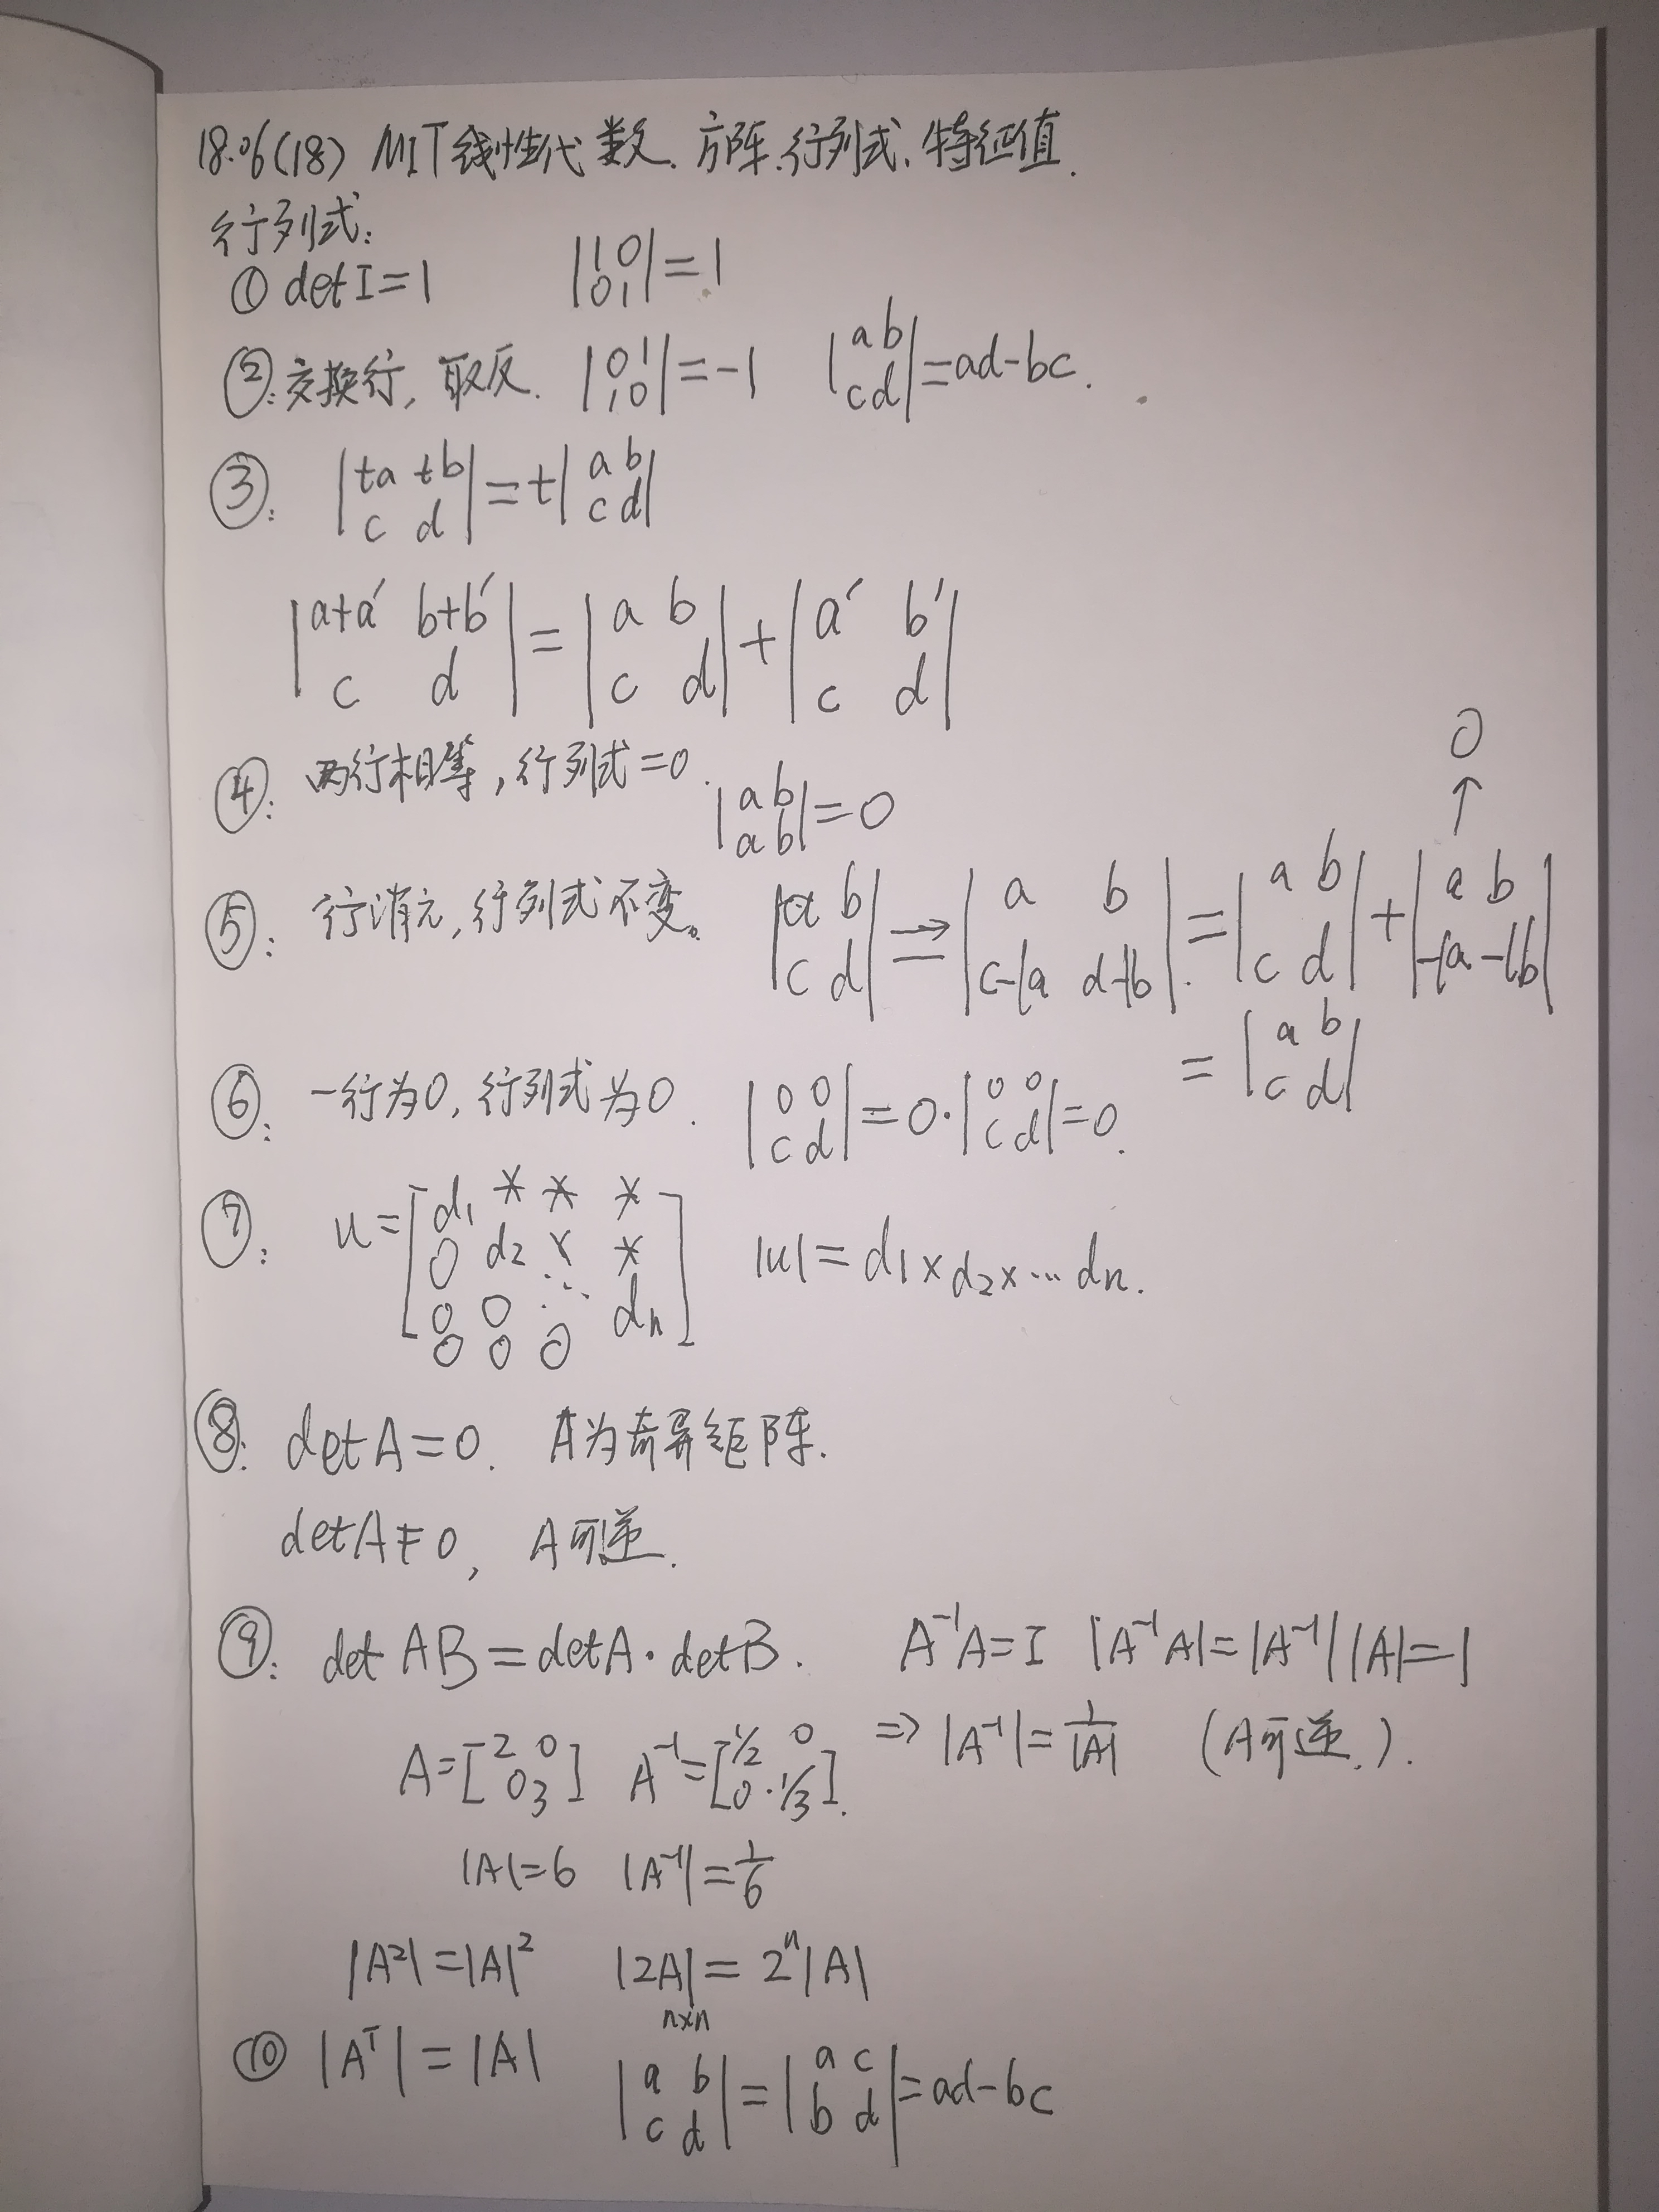 18.06(18) MIT线性代数. 方阵.行列式、特征值.
行列式:
① det I=1 |1 0; 0 1|=1
②:交换行, 取反. |0 1; 1 0|=-1 |a b; c d|=ad-bc.
③: |ta tb; c d|=t|a b; c d|
|a+a′ b+b′; c d|=|a b; c d|+|a′ b′; c d|
④: 两行相等,行列式=0. |a b; a b|=0
0
↑
⑤: 行消元,行列式不变。 |a b; c d|⇒|a b; c-la d-lb|.=|a b; c d|+|a b; -la -lb|
=|a b; c d|
⑥: 一行为0,行列式为0. |0 0; c d|=0·|0 0; c d|=0.
⑦: u=[d₁ * * *; 0 d₂ * *; 0 0 ⋱ dₙ; 0 0 0] |u|=d₁×d₂×…dₙ.
⑧: detA=0. A为奇异矩阵.
detA≠0, A可逆.
⑨: det AB=detA·detB. A⁻¹A=I |A⁻¹A|=|A⁻¹||A|=1
⇒|A⁻¹|=1/|A| (A可逆.).
A=[2 0; 0 3] A⁻¹=[1/2 0; 0 1/3].
|A|=6 |A⁻¹|=1/6
|A²|=|A|² |2A|=2ⁿ|A|
n×n
⑩ |Aᵀ|=|A| |a b; c d|=|a c; b d|=ad-bc